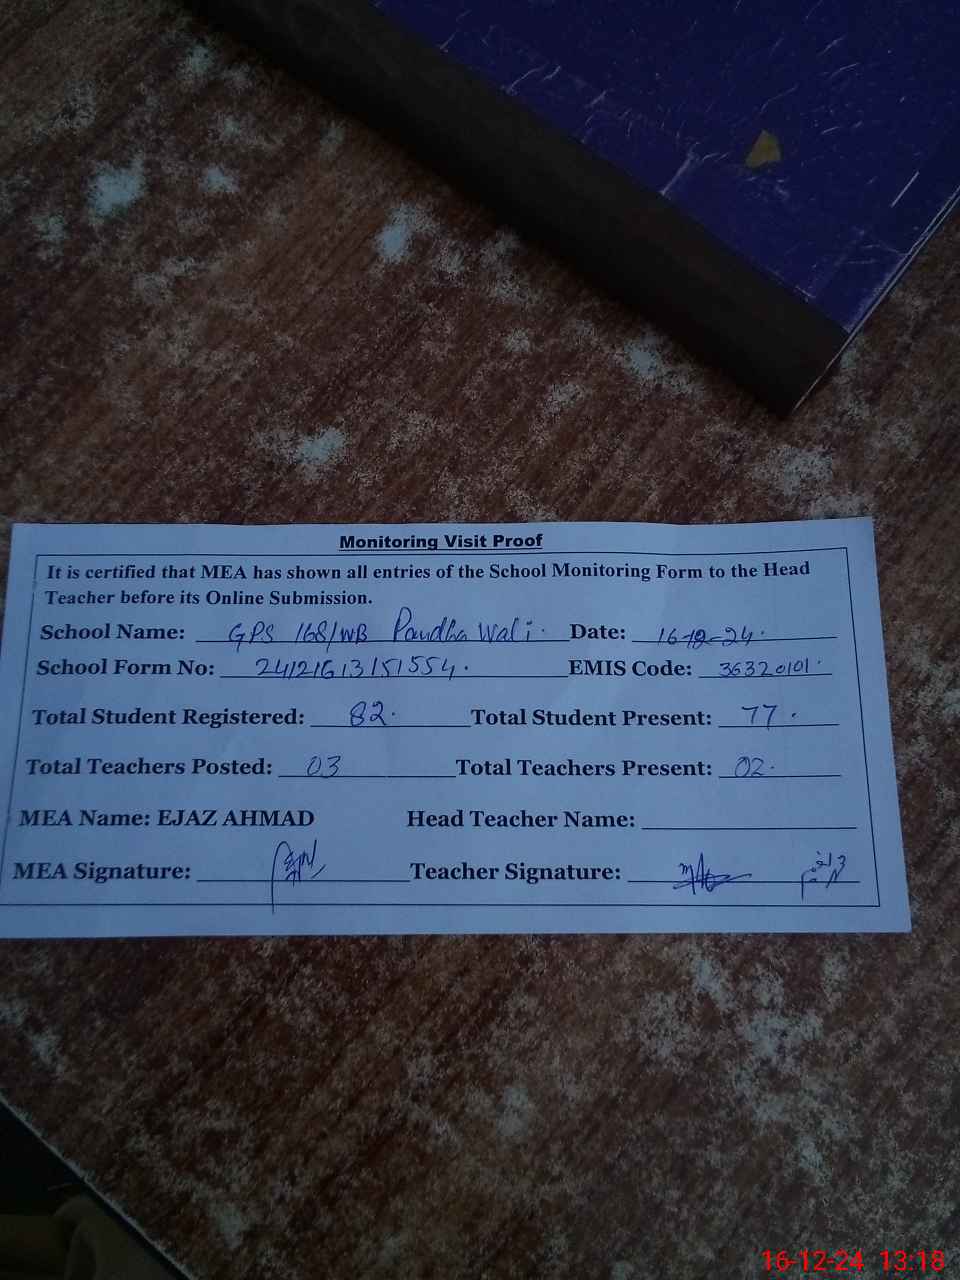 Monitoring Visit Proof
It is certified that MEA has shown all entries of the School Monitoring Form to the Head
Teacher before its Online Submission.
School Name: GPS 168/WB Pandha Wali. Date: 16-12-24.
School Form No: 24121613151554. EMIS Code: 36320101.
Total Student Registered: 82. Total Student Present: 77.
Total Teachers Posted: 03 Total Teachers Present: 02.
MEA Name: EJAZ AHMAD Head Teacher Name:
MEA Signature: Teacher Signature:
16-12-24 13:18